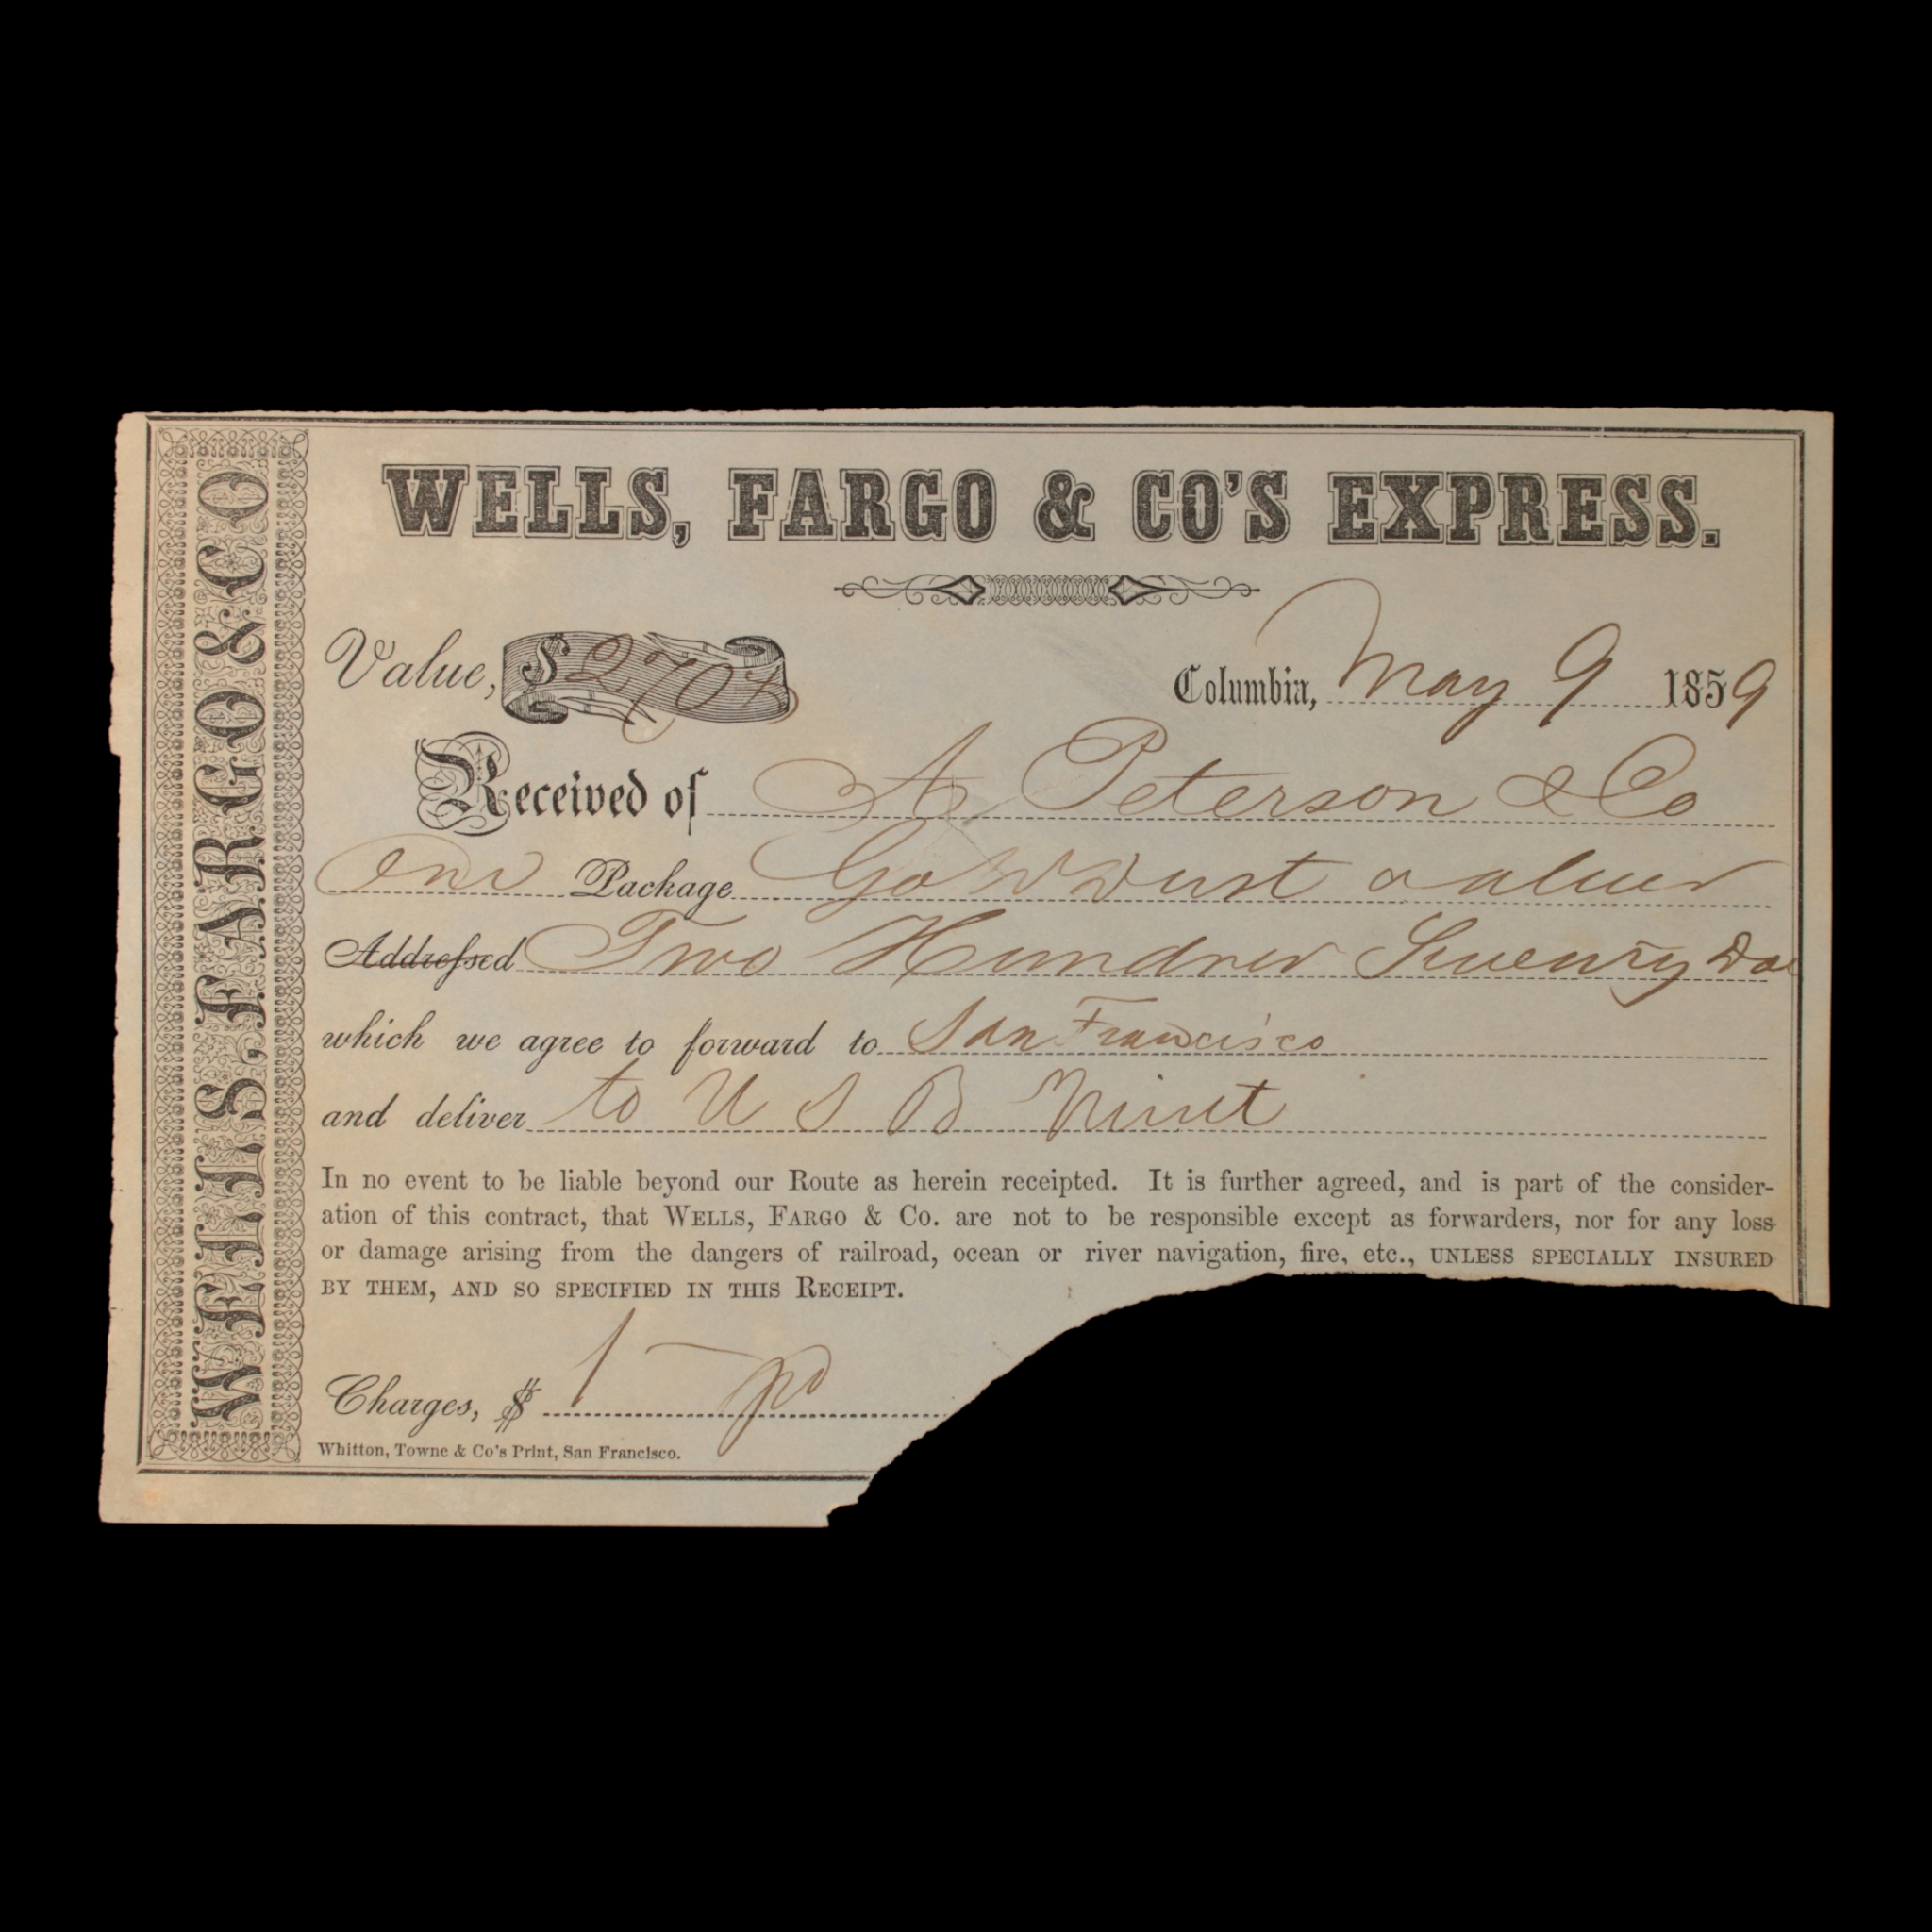 WELLS, FARGO & CO
WELLS, FARGO & CO'S EXPRESS.
Value, $ 270
Columbia, May 9 1859
Received of A Peterson & Co
One Package Gold Dust valued
Addressed Two Hundred Seventy Dol
which we agree to forward to San Francisco
and deliver to U S B Mint
In no event to be liable beyond our Route as herein receipted. It is further agreed, and is part of the consider-
ation of this contract, that WELLS, FARGO & Co. are not to be responsible except as forwarders, nor for any loss
or damage arising from the dangers of railroad, ocean or river navigation, fire, etc., UNLESS SPECIALLY INSURED
BY THEM, AND SO SPECIFIED IN THIS RECEIPT.
Charges, $ 1 — pd
Whitton, Towne & Co's Print, San Francisco.